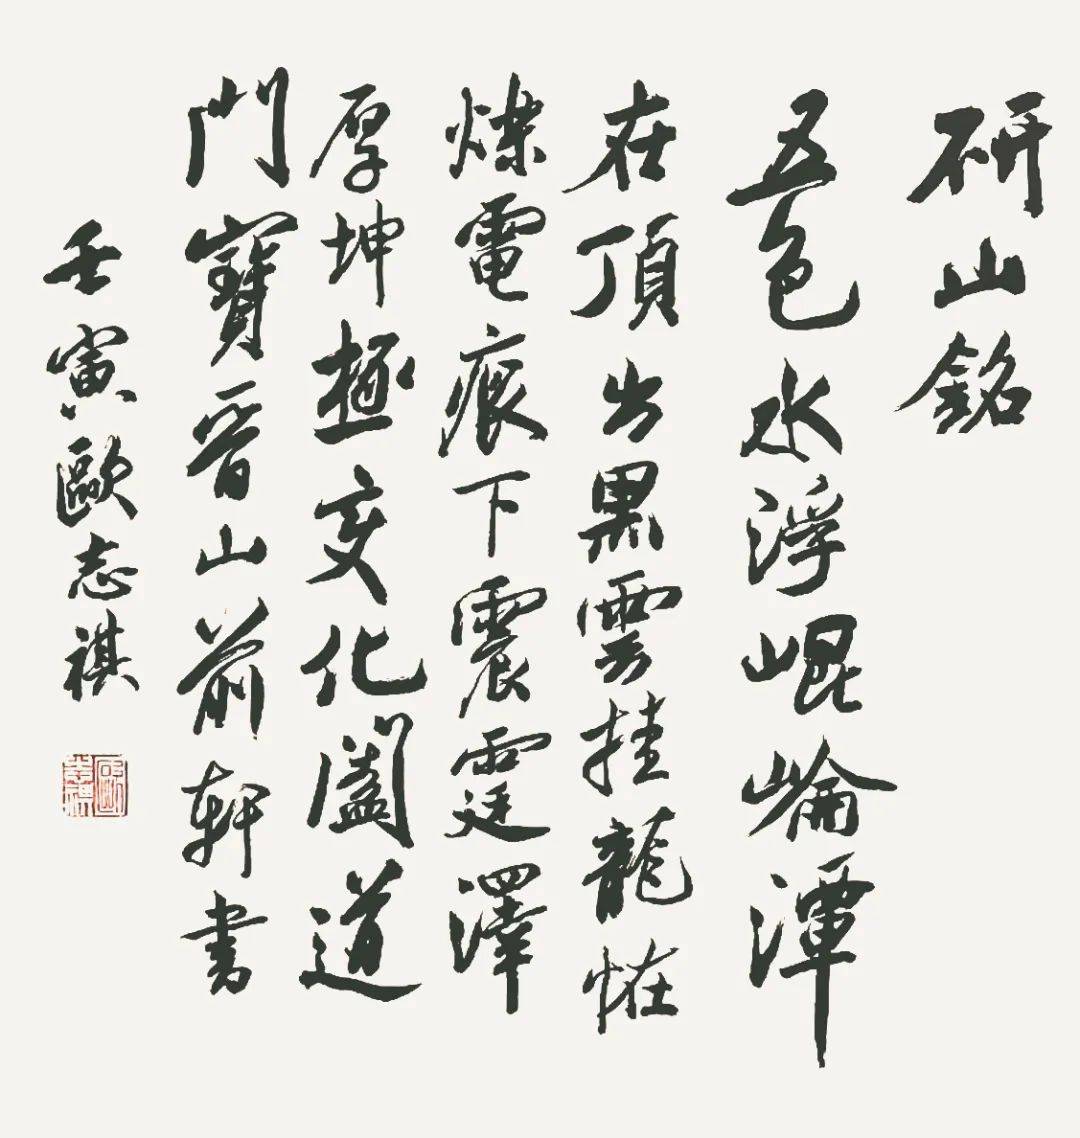 研山銘
五色水浮崐崘潭
在頂出黑雲挂龍恠
爍電痕下震霆澤
厚坤極变化闔道
門寶晉山前軒書
壬寅歐志祺